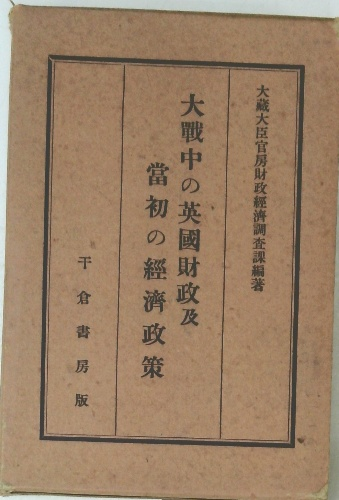 大藏大臣官房財政經濟調査課編著
大戰中の英國財政及
當初の經濟政策
千倉書房版